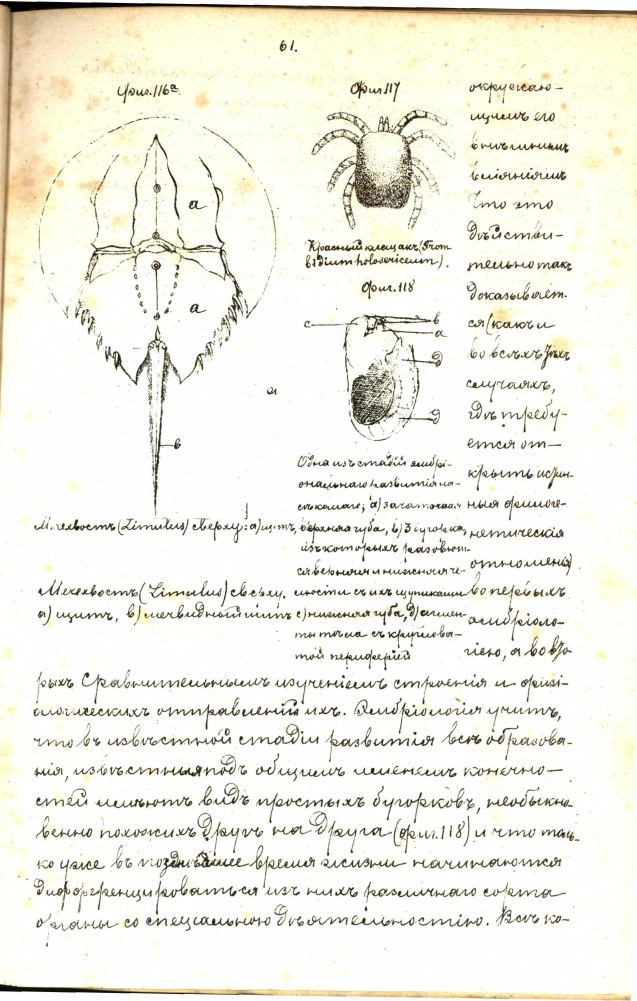 61.
Фиг. 116а.
а
а
в
Мечехвостъ (Limulus) сверху: а) щитъ,
Мечехвостъ (Limulus) сверху.
а) щитъ, в) мечевидный шипъ
Фиг 117
Красный клещакъ (Trom
bidium holosericeum).
Фиг. 118
с
в
а
д
д
Одна изъ стадій эмбрі-
ональнаго развитія на-
сѣкомаго; а) зачаточная
верхняя губа, в) 3 бугорка,
изъ которыхъ разовьют-
ся верхняя и нижняя че-
люсти съ ихъ щупиками
с) нижняя губа, д) сегмен-
ты тѣла съ круглова-
той периферіей
окружаю-
щимъ его
внѣшнимъ
вліяніямъ
Что это
дѣйстви-
тельно такъ
доказывает-
ся (какъ и
во всѣхъ тѣхъ
случаяхъ,
гдѣ требу-
ется от-
крыть
ныя филоге-
нетическія
отношенія)
во первыхъ
эмбріоло-
гіею, а во вто
рыхъ сравнительнымъ изученіемъ строенія и физі-
ологическихъ отправленій ихъ. Эмбріологія учитъ,
что въ извѣстной стадіи развитія всѣ образова-
нія, извѣстныя подъ общимъ именемъ конечно-
стей имѣютъ видъ простыхъ бугорковъ, необыкно
венно похожихъ другъ на друга (фиг. 118) и что толь-
ко уже въ позднѣйшее время жизни начинаются
дифференцироваться изъ нихъ различнаго сорта
органы со спеціальною дѣятельностію. Всѣ ко-